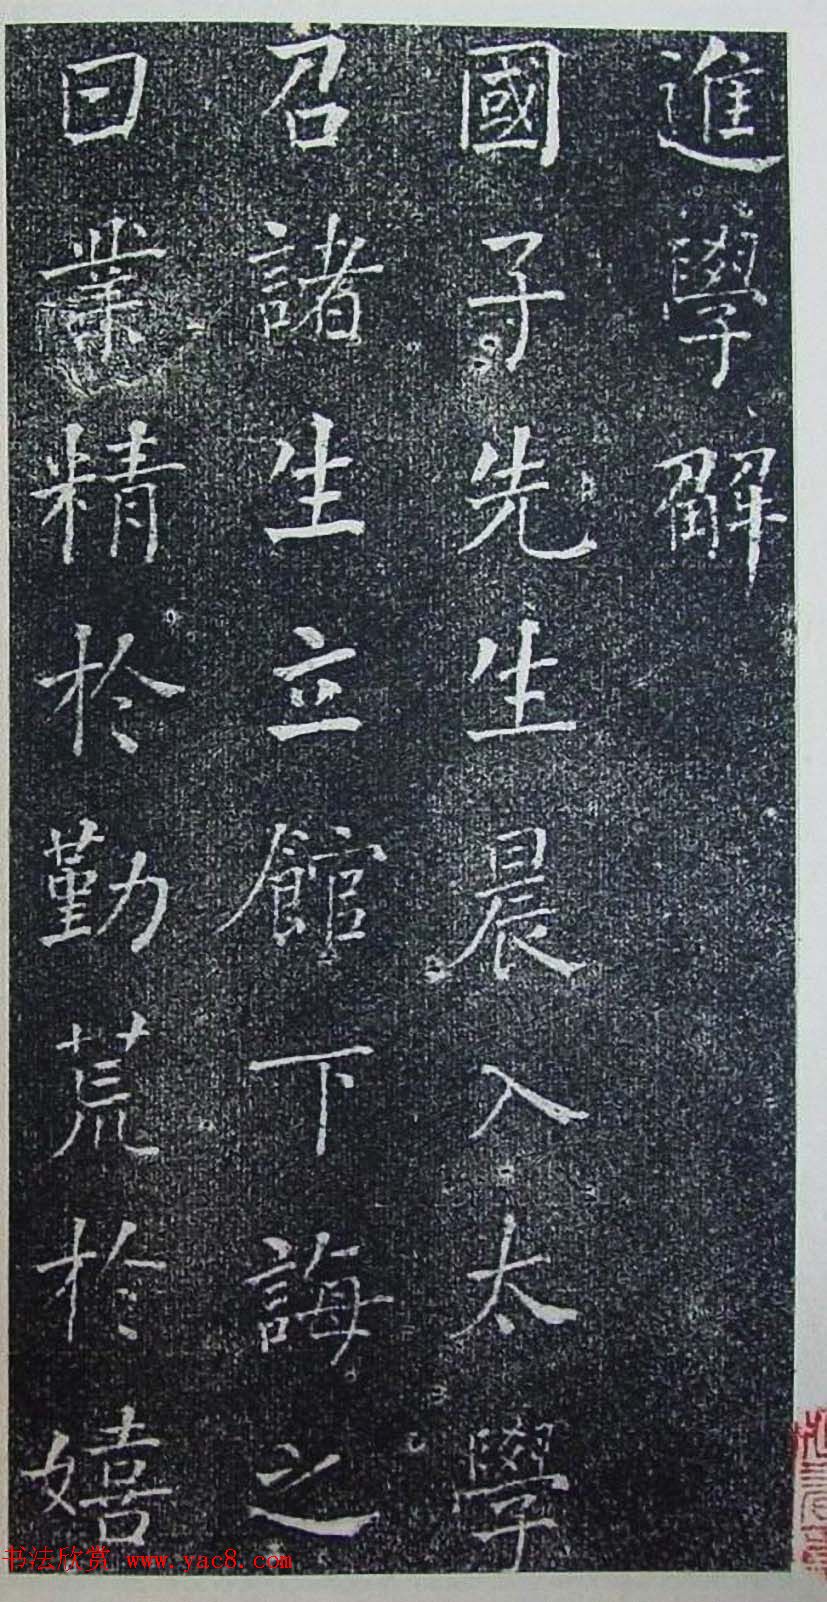 進學解
國子先生晨入太學
召諸生立館下誨之
曰業精於勤荒於嬉
书法欣赏 www.yac8.com